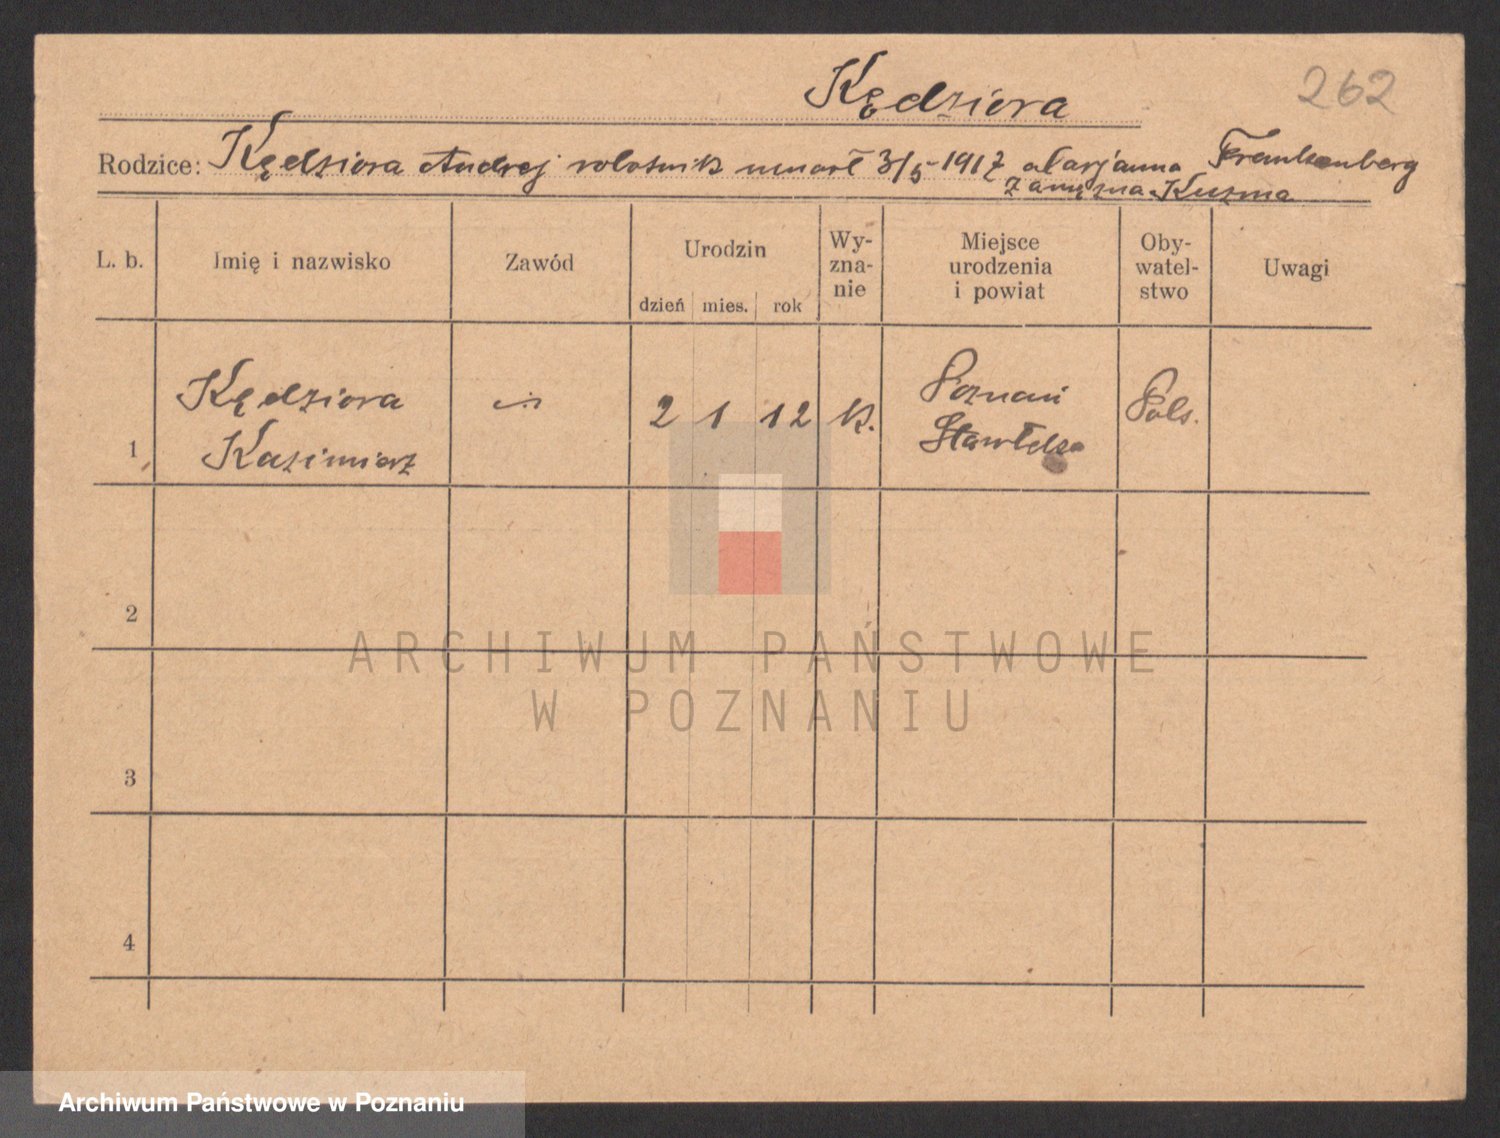 Kędziora
262
Rodzice: Kędziora Andrzej robotnik umarł 3/5-1917 Marjanna Frankenberg
zamężna Kuzma
L. b. Imię i nazwisko Zawód Urodzin Wy-zna-nie Miejsce urodzenia i powiat Oby-watel-stwo Uwagi
dzień mies. rok
1 Kędziora Kazimierz 2 1 12 k. Poznań Pols.
2
ARCHIWUM PAŃSTWOWE
W POZNANIU
3
4
Archiwum Państwowe w Poznaniu